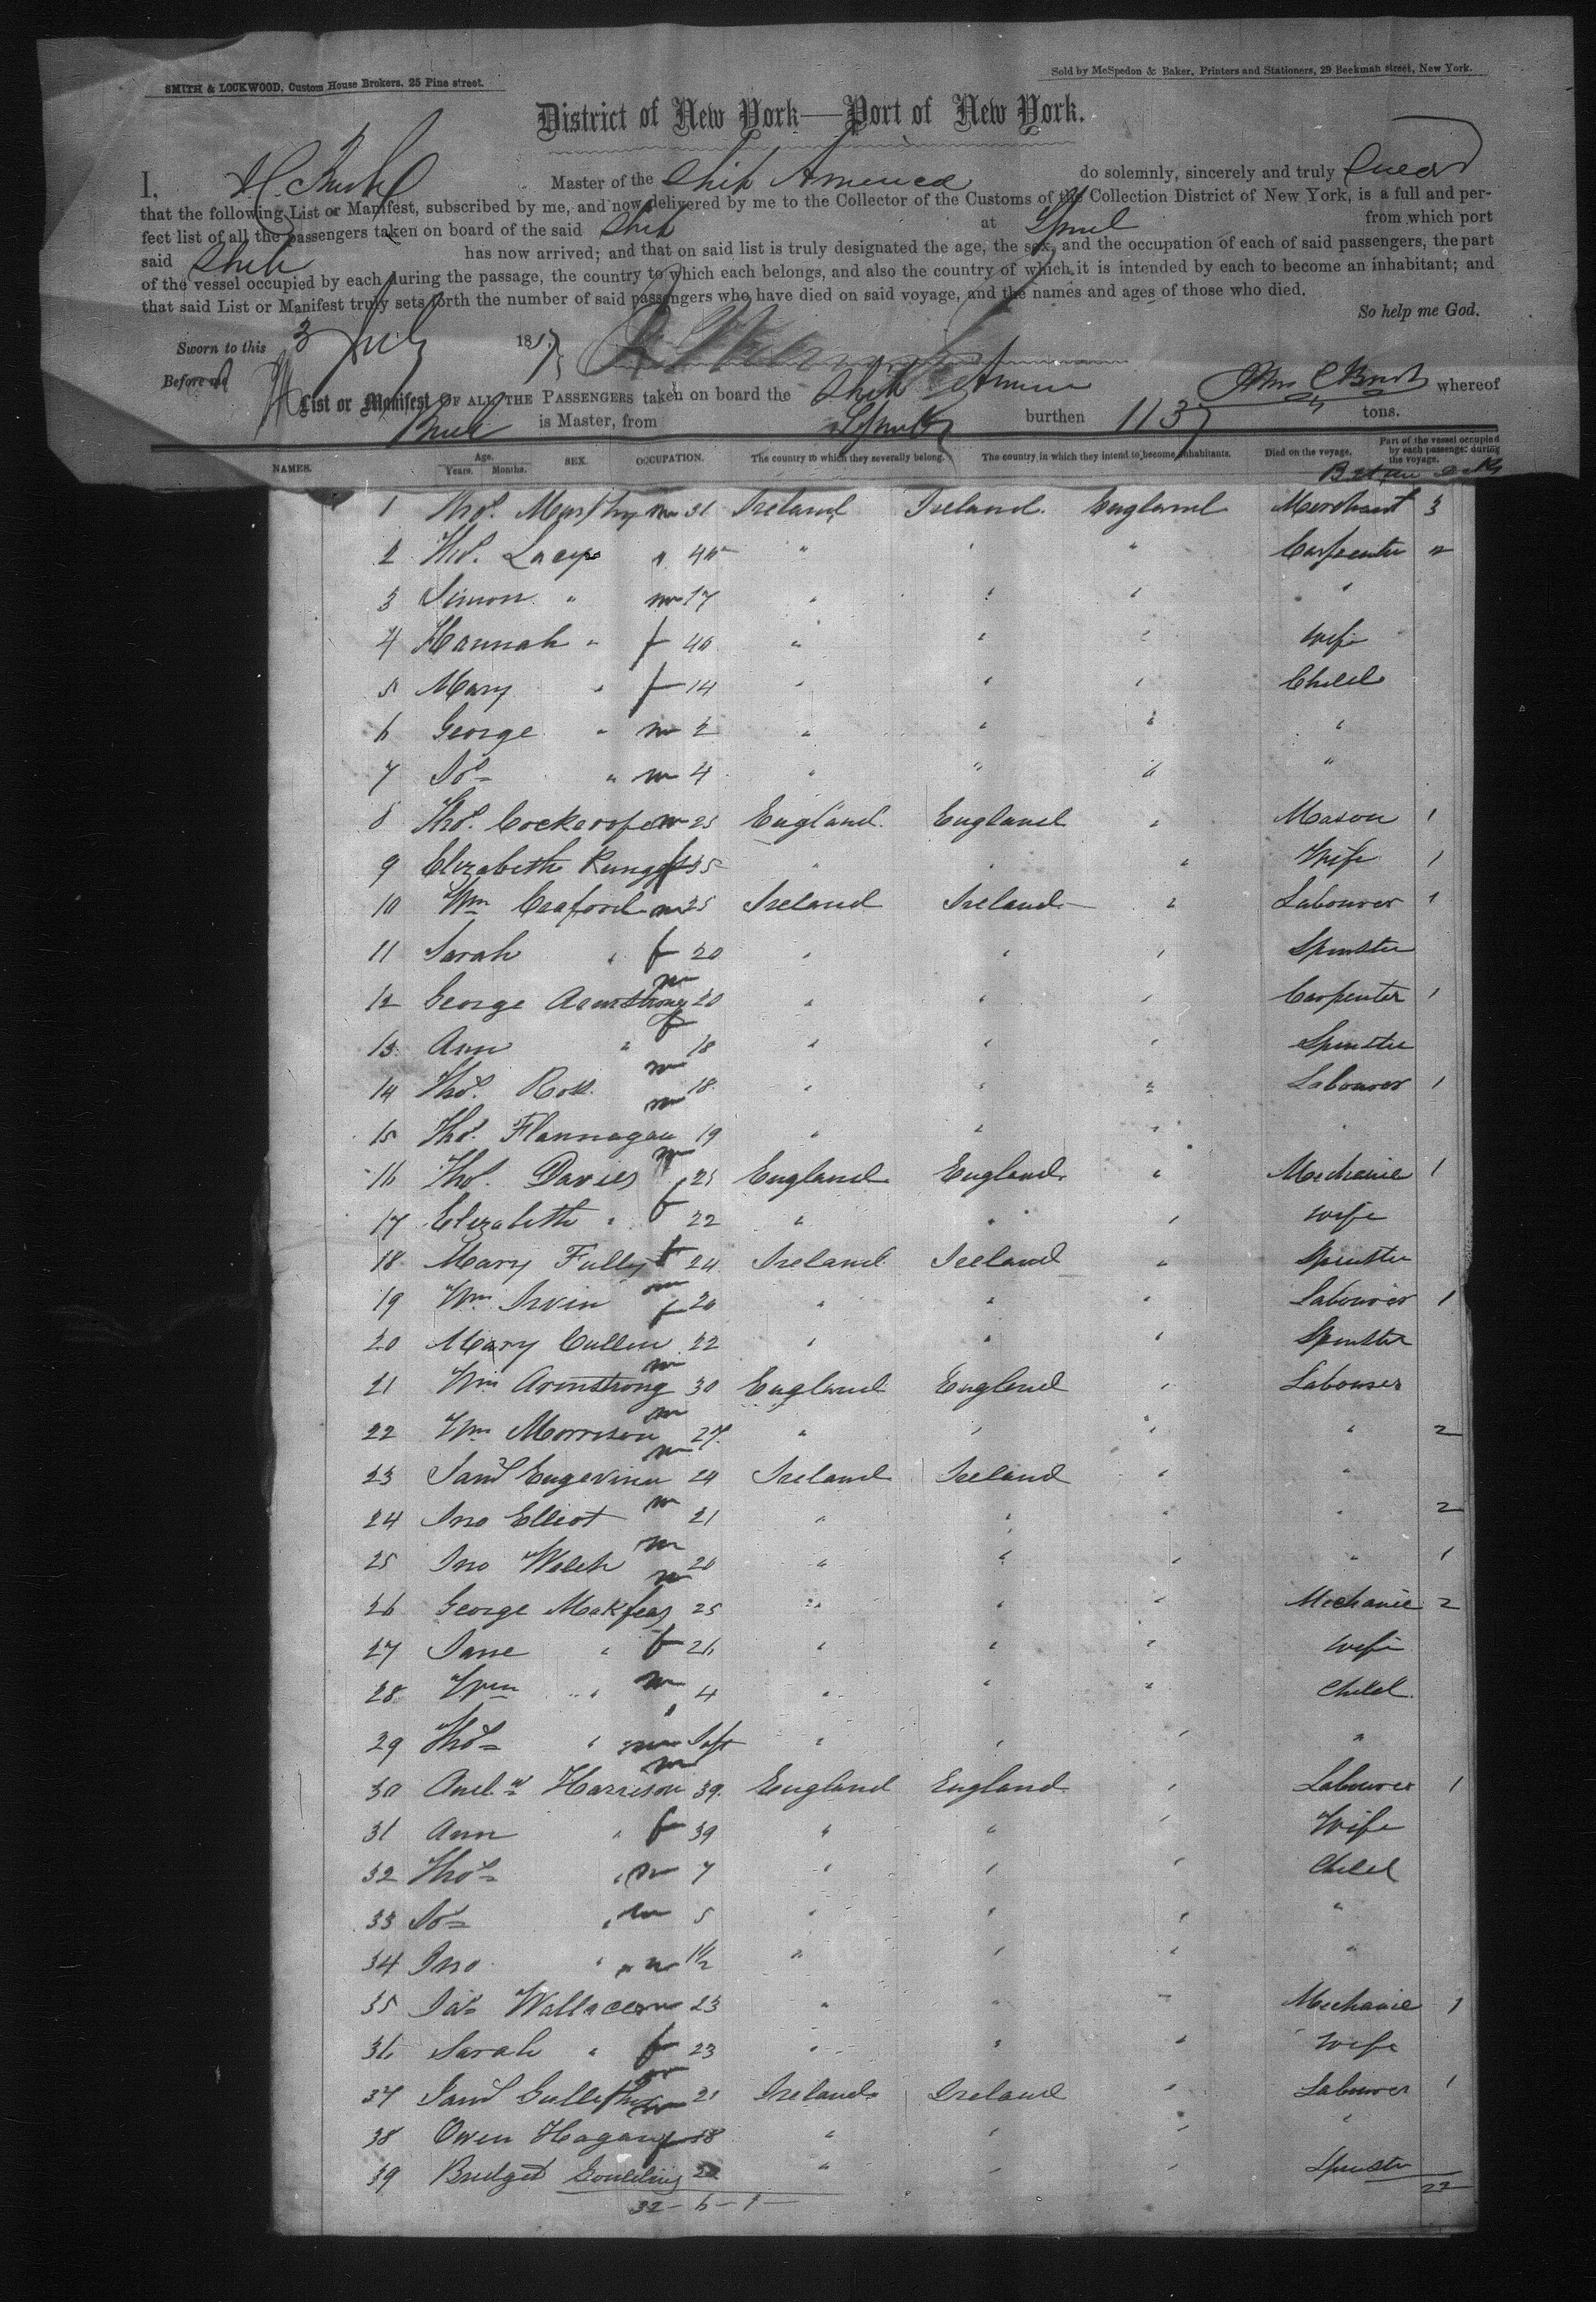 SMITH & LOCKWOOD, Custom House Brokers, 25 Pine street.
Sold by McSpedon & Baker, Printers and Stationers, 29 Beekman street, New York.
District of New York—Port of New York.
I, Master of the Ship America do solemnly, sincerely and truly Swear
that the following List or Manifest, subscribed by me, and now delivered by me to the Collector of the Customs of the Collection District of New York, is a full and per-
fect list of all the passengers taken on board of the said Ship at Lpool from which port
said Ship has now arrived; and that on said list is truly designated the age, the sex, and the occupation of each of said passengers, the part
of the vessel occupied by each during the passage, the country to which each belongs, and also the country of which it is intended by each to become an inhabitant; and
that said List or Manifest truly sets forth the number of said passengers who have died on said voyage, and the names and ages of those who died.
So help me God.
Sworn to this 3 July 1857
Before me
List or Manifest OF ALL THE PASSENGERS taken on board the Ship America whereof
is Master, from burthen 1137 tons.
NAMES. Age. Years. Months. SEX. OCCUPATION. The country to which they severally belong. The country in which they intend to become inhabitants. Died on the voyage. Part of the vessel occupied by each passenger during the voyage.
1 Thos. Murphy m 31 Ireland Ireland England Merchant 3
2 Thos. Lacy 40 " " " Carpenter 2
3 Simon " m 17 " " " "
4 Hannah " f 40 " " " Wife
5 Mary " f 14 " " " Child
6 George " m 2 " " " "
7 Jos " m 4 " " " "
8 Thos. m 25 England England " Mason 1
9 Elizabeth f 35 " " " Wife 1
10 Wm Craford m 25 Ireland Ireland " Labourer 1
11 Sarah " f 20 " " " Spinster
12 George Armstrong m 20 " " " Carpenter 1
13 Ann " f 18 " " " Spinster
14 Thos. Ross m 18 " " " Labourer 1
15 Thos. Flannagan m 19 " " " "
16 Thos. Davies m 25 England England " Mechanic 1
17 Elizabeth " f 22 " " " Wife
18 Mary Fully f 24 Ireland Ireland " Spinster
19 Wm Irvin m 20 " " " Labourer 1
20 Mary Cullen f 22 " " " Spinster
21 Wm Armstrong m 30 England England " Labourer
22 Wm Morrison m 27 " " " " 2
23 Saml m 24 Ireland Ireland " "
24 Jno Elliot m 21 " " " " 2
25 Jno Welch m 20 " " " " 1
26 George m 25 " " " Mechanic 2
27 Jane " f 26 " " " Wife
28 Wm " m 4 " " " Child
29 Thos " m Inft " " " "
30 Andw Harrison m 39 England England " Labourer 1
31 Ann " f 39 " " " Wife
32 Thos " m 7 " " " Child
33 Jos " m 5 " " " "
34 Jno " m 1½ " " " "
35 Jas Wallace m 23 " " " Mechanic 1
36 Sarah " f 23 " " " Wife
37 Saml m 21 Ireland Ireland " Labourer 1
38 Owen Hagan m 18 " " " "
39 Bridget Goulding f " " " Spinster
32 - 6 - 1 22